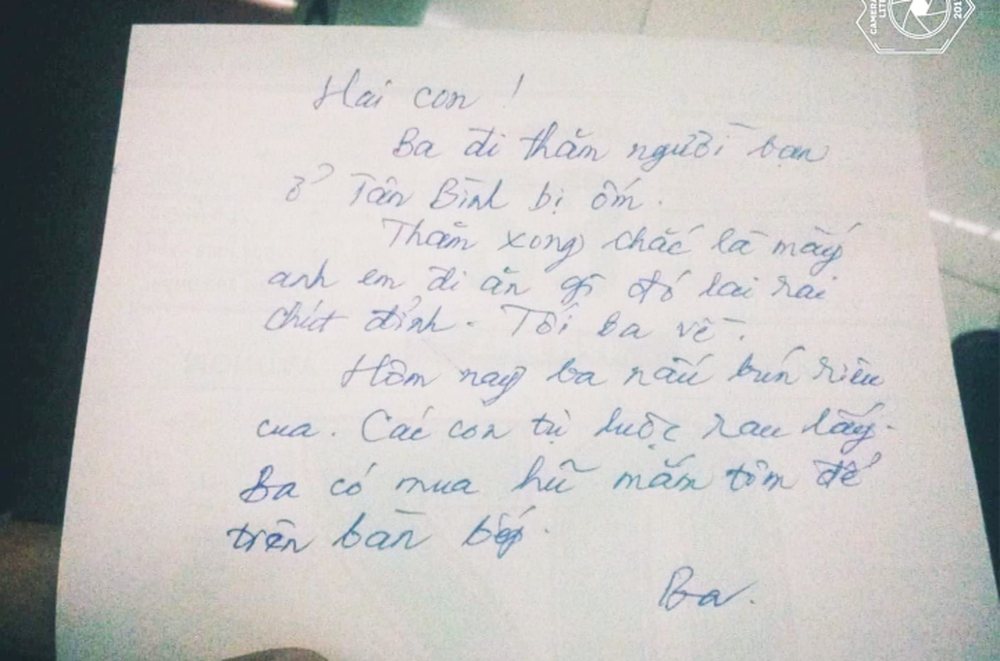 Hai con !
Ba đi thăm người bạn
ở Tân Bình bị ốm.
Thăm xong chắc là mấy
anh em đi ăn gì đó lai rai
chút đỉnh. Tối ba về.
Hôm nay ba nấu bún riêu
cua. Các con tự luộc rau lấy.
Ba có mua hũ mắm tôm để
trên bàn bếp.
Ba.